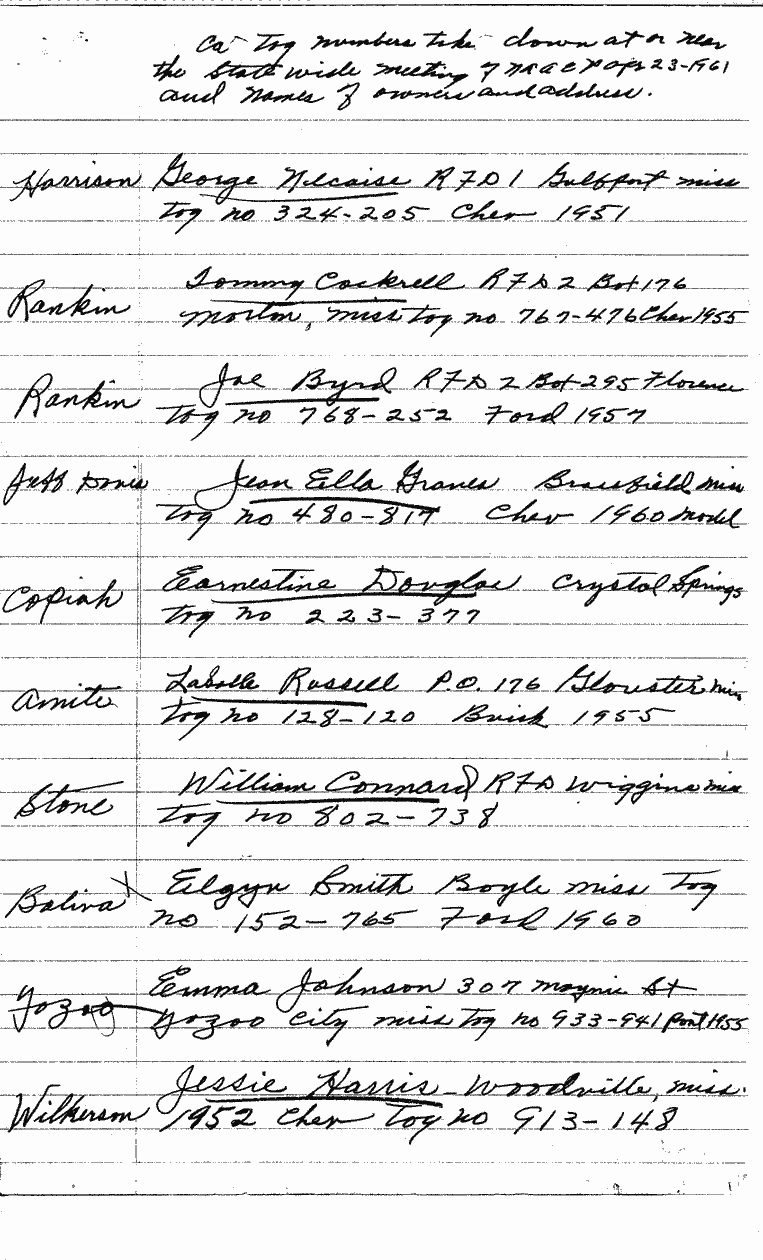 Ca Tog numbers take down at or near
the State wide meeting of NAACP apr 23-1961
and names of owners and address.
Harrison George Necaise RFD 1 Gulfport miss
Tog no 324-205 Chev 1951
Tommy Cockrell RFD 2 Box 176
Rankin Morton, miss Tog no 767-476 Chev 1955
Rankin Joe Byrd RFD 2 Box 295 Florence
Tog no 768-252 Ford 1957
Jeff Davis Jean Ella Graves Brassfield miss
Tog no 480-817 Chev 1960 model
Copiah Earnestine Douglas Crystal Springs
Tog no 223-377
Amite Russell P.O. 176 Gloster miss
Tog no 128-120 Buick 1955
Stone William Connard RFD Wiggins miss
Tog no 802-738
Boliva Elgyn Smith Boyle miss Tog
no 152-765 Ford 1960
Emma Johnson 307 St
Yazoo Yazoo City miss Tog no 933-941 Pont 1955
Jessie Harris Woodville, miss.
Wilkerson 1952 Chev Tog no 913-148